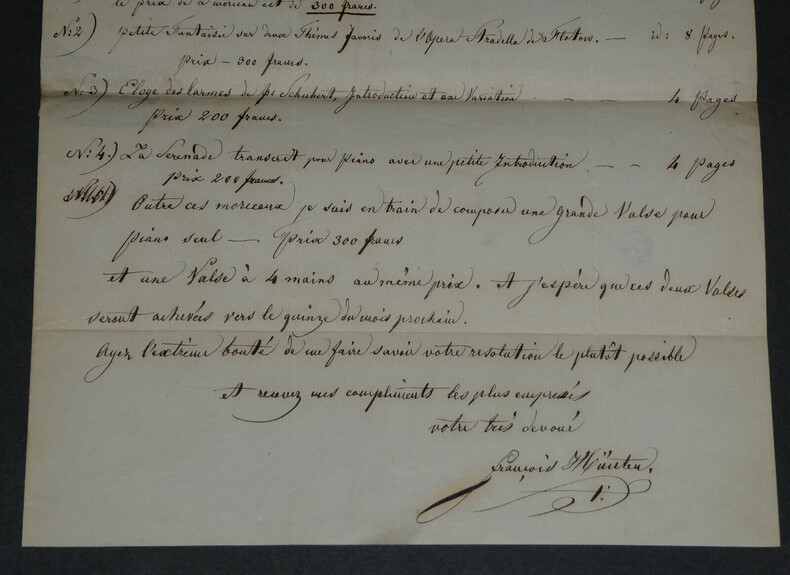 le prix de ce morceau est de 300 francs.
No: 2) Petite Fantaisie sur deux Thêmes favoris de l'Opera Stradella de Flotow. — id: 8 Pages.
Prix — 300 francs.
No: 3) Eloge des larmes de Fr Schubert, Introduction et une Variation — — 4 Pages
Prix 200 francs.
No: 4.) La Serenade transcrit pour Piano avec une petite Introduction — — 4 Pages
Prix 200 francs.
Outre ces morceaux je suis en train de composer une grande Valse pour
Piano seul — Prix 300 francs
et une Valse à 4 mains au même prix. Et j'espère que ces deux Valses
seront achevés vers le quinze du mois prochain.
Ayez l'extrème bonté de me faire savoir votre resolution le plutôt possible
et recevez mes compliments les plus empressés
votre très devoué
François Hünten.